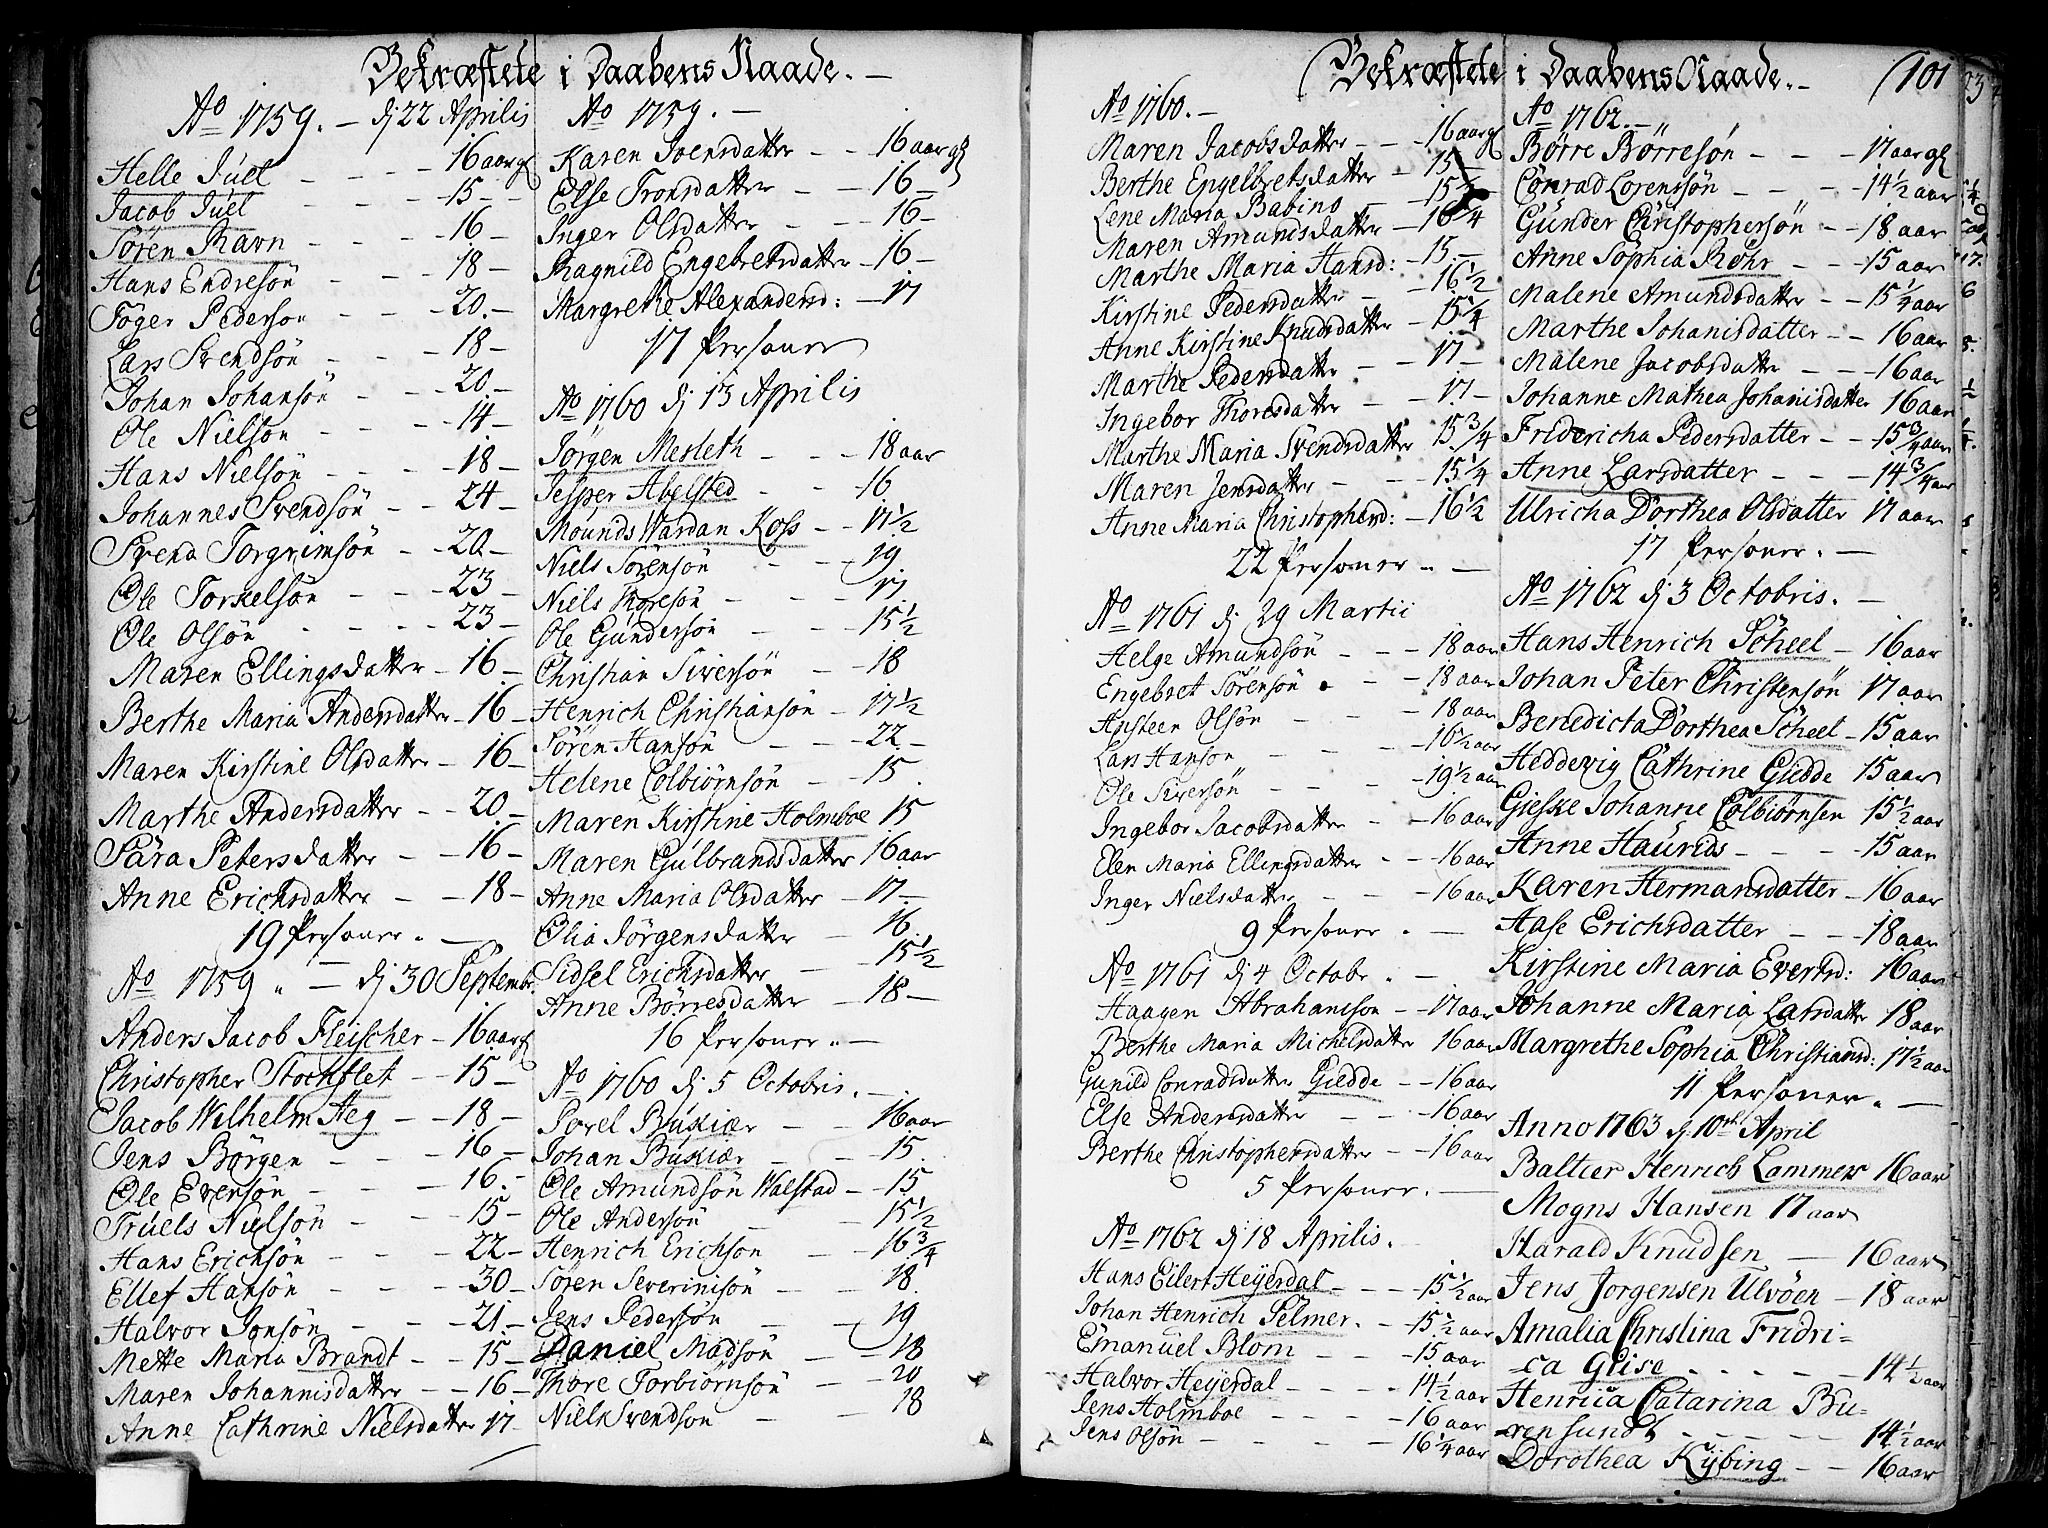 Bekræftede i Daabens Naade. —
Ao 1759. — dj 22 Aprilis
Helle Juel - - - - 16 aargl
Jacob Juel - - - - 15 -
Sören Ravn - - - - 16 -
Hans Endresön - - - 18 -
Töger Pedersön - - - 20. -
Lars Svendsön - - - 18 -
Johan Johansön - - - 20 -
Ole Nielsön - - - 14 -
Hans Nielsön - - - - 18 -
Johannes Svendsön - - 24 -
Svend Torgrimsön - - 20 -
Ole Torkelsön - - - 23 -
Ole Olsön - - - - 23 -
Maren Ellingsdatter - 16 -
Berthe Maria Andersdatter - 16 -
Maren Kirstine Olsdatter - 16 -
Marthe Andersdatter - - 20. -
Sara Petersdatter - - 16 -
Anne Erichsdatter - - 18 -
19 Personer. —
Ao 1759 „ — dj 30 Septembr.
Anders Jacob Fleischer - 16 aargl
Christopher Stockflet - 15 -
Jacob Wilhelm Aeg - - 18 -
Jens Börgen - - - 16 -
Ole Evensön - - - 16. -
Truels Nielsön - - 15 -
Hans Erichsön - - - 22 -
Ellef Hansön - - - 30 -
Halvor Jonsön - - - 21 -
Mette Maria Brandt - - 15 -
Maren Johannisdatter - - 16 -
Anne Cathrine Nielsdatter 17 -
Ao 1759. —
Karen Ivensdatter - - 16 aargl
Else Tronsdatter - - 16 -
Inger Olsdatter - - 16 -
Ragnild Engebretsdatter - 16 -
Margrethe Alexandersd: - 17
17 Personer
Ao 1760 dj 13 Aprilis
Jörgen Mesleth - - - 18 aar
Jesper Abelsted - - 16
Mounds Wardan Koss - - 17 1/2
Niels Sörensön - - 19
Niels Thoresön - - - 17
Ole Gundersön - - 15 1/2
Christian Siversön - - 18
Henrich Christiansön - 17 1/2
Sören Hansön - - - 22 -
Helene Colbiörnsön - - 15.
Maren Kirstine Holmboe 15
Maren Gulbrandsdatter 16 aar
Anne Maria Olsdatter - 17. -
Olia Jörgensdatter - 16.
Sidsel Erichsdatter - 15 1/2
Anne Börresdatter - 18 -
16 Personer „ —
Ao 1760 dj 5 Octobris. —
Sorel Buskiær - - 16 aar
Johan Buskiær - - 15.
Ole Amundsön Walstad - - 15
Ole Andersön - - 15 1/2
Henrich Erichson - - 16 3/4
Sören Severinisön - - 18.
Jens Pedersön - - 19
Daniel Madsön - - 18
Thore Torbiörnsön - - 20
Niels Svendsön - - 18
Bekræftede i Daabens Naade. - 101
Ao 1760. -
Maren Jacobsdatter - - - 16 aargl
Berthe Engelbretsdatter - 15
Lene Maria Babino - - 15
Maren Amundsdatter - 16 1/4
Marthe Maria Hansd: - 15. -
Kirstine Pedersdatter - - 16 1/2
Anne Kirstine Knudsdatter - 15 1/4
Marthe Pedersdatter - - 17 -
Ingebor Thoresdatter - - 17 -
Marthe Maria Svendsdatter 15 3/4
Maren Jensdatter - - - 15 1/4
Anne Maria Christophersd: - 16 1/2
22 Personer „ —
Ao 1761 dj 29 Martii
Helge Amundsön - - - 18 aar
Engebret Sörensön - - - 18 aar
Austeen Olsön - - - 18 aar
Lars Hanson - - - 16 1/2 aar
Ole Siversön - - - 19 1/2 aar
Ingebor Jacobsdatter - - 16 aar
Elen Maria Ellingsdatter - - 16 aar
Inger Nielsdatter - - - 16 aar
9 Personer. —
Ao 1761 dj 4 Octobr. —
Haagen Abrahamson - - 17 aar
Berthe Maria Michelsdatter 16 aar
Gunild Conradsdatter Giedde - - 16 aar
Else Andersdatter - - - 16 aar
Berthe Christophersdatter - - 16 aar
5 Personer. —
Ao 1762 dj 18 Aprilis.
Hans Eilert Heyerdal - - - 15 1/2 aar
Johan Henrich Selmer. - - 15 1/2 aar
Emanuel Blom - - - 15 aar
Halvor Heyerdal - - - - 14 1/2 aar
Jens Holmboe - - - - 16 aar
Jens Olsön - - - - 16 1/4 aar
Ao 1762. -
Börre Börresön - - - 17 aargl
Conrad Lorenssön - - - 14 1/2 aar
Gunder Christophersön - - 18 aar
Anne Sophia Röhr - - - 15 aar
Malene Amundsdatter - - 15 1/4 aar
Marthe Johanisdatter - - 16 aar
Malene Jacobsdatter - - 16 aar
Johanne Mathea Johanisdatter 16 aar
Fridericha Pedersdatter - - 15 3/4 aar
Anne Larsdatter - - - 14 3/4 aar
Ulricha Dorthea Olsdatter 17 aar
17 Personer. —
Ao 1762 dj 3 Octobris. —
Hans Henrich Scheel - 16 aar
Johan Peter Christensön 17 aar
Benedicta Dorthea Scheel - 15 aar
Heddevig Cathrine Giedde 15 aar
Gieske Johanne Colbiörnsen 15 1/2 aar
Anne Haurids - - - - 15 aar
Karen Hermansdatter - 16 aar
Aase Erichsdatter - - 18 aar
Kirstine Maria Evertsd: 16 aar
Johanne Maria Larsdatter 18 aar
Margrethe Sophia Christiansd: 17 1/2 aar
11 Personer „ —
Anno 1763 dj 10de April
Baltzer Henrich Lammers 16 aar
Mogns Hansen 17 aar
Harald Knudsen — 16 aar
Jens Jorgensen Ulvöen - 18 aar
Amalia Christina Fridri-
ca Griise - - - - - 14 1/2 aar
Henrica Catarina Bu-
rensundt - - - - - 14 1/2 aar
Dorothea Kybing - - 16 aar